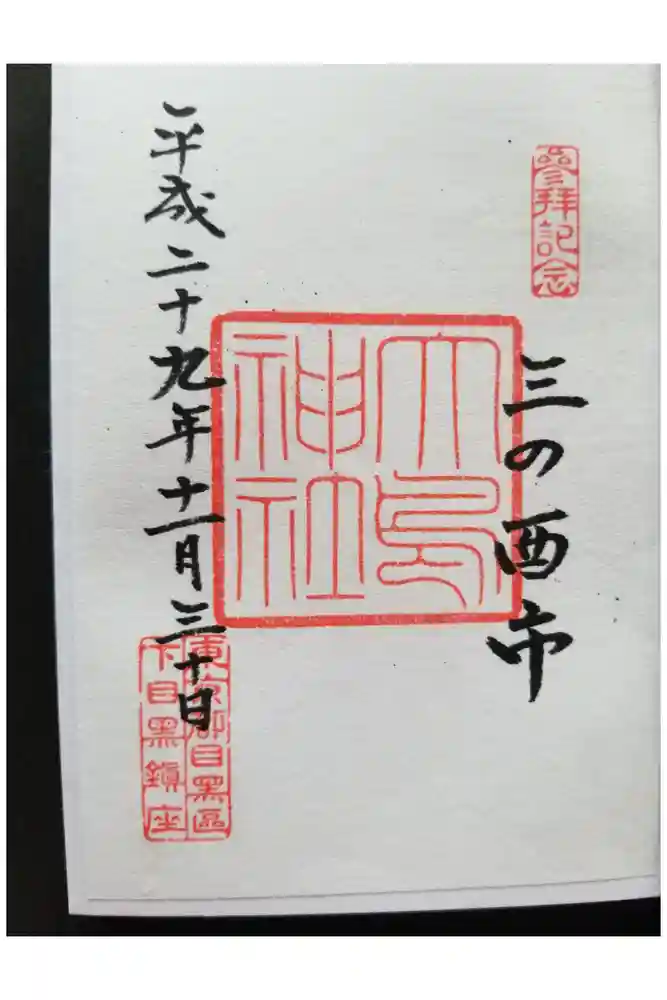 參拝記念
三の酉市
大鳥
神社
東京都目黑區
下目黑鎭座
平成二十九年十一月三十日